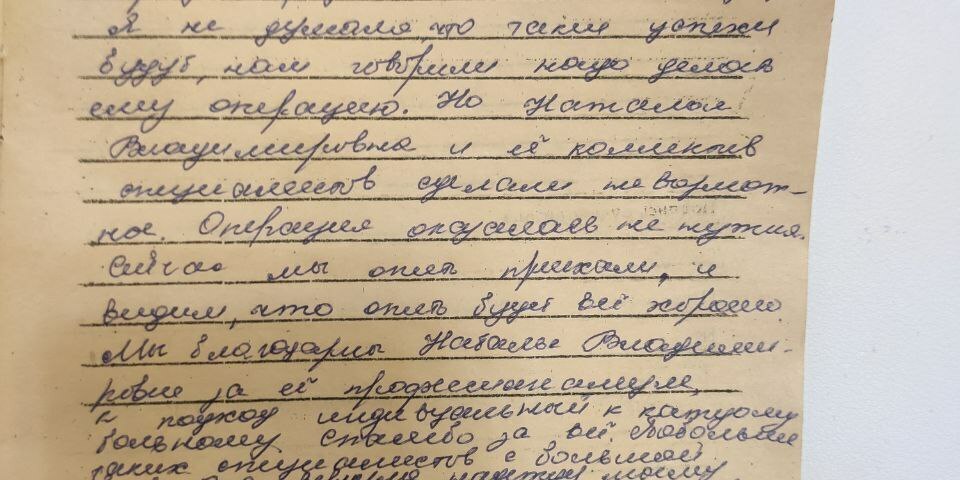 Я не думала, что такие успехи
будут, нам говорили надо делать
ему операцию. Но Наталья
Владимировна и её коллектив
специалистов сделали невормот-
ное. Операция оказалась не нужна.
Сейчас мы опять приехали, и
видим, что опять будет всё хорошо.
Мы благодарны Наталье Владими-
ровне за её профессионализм,
подход индивидуальный к каждому
больному спасибо за всё. Побольше
таких специалистов с большой